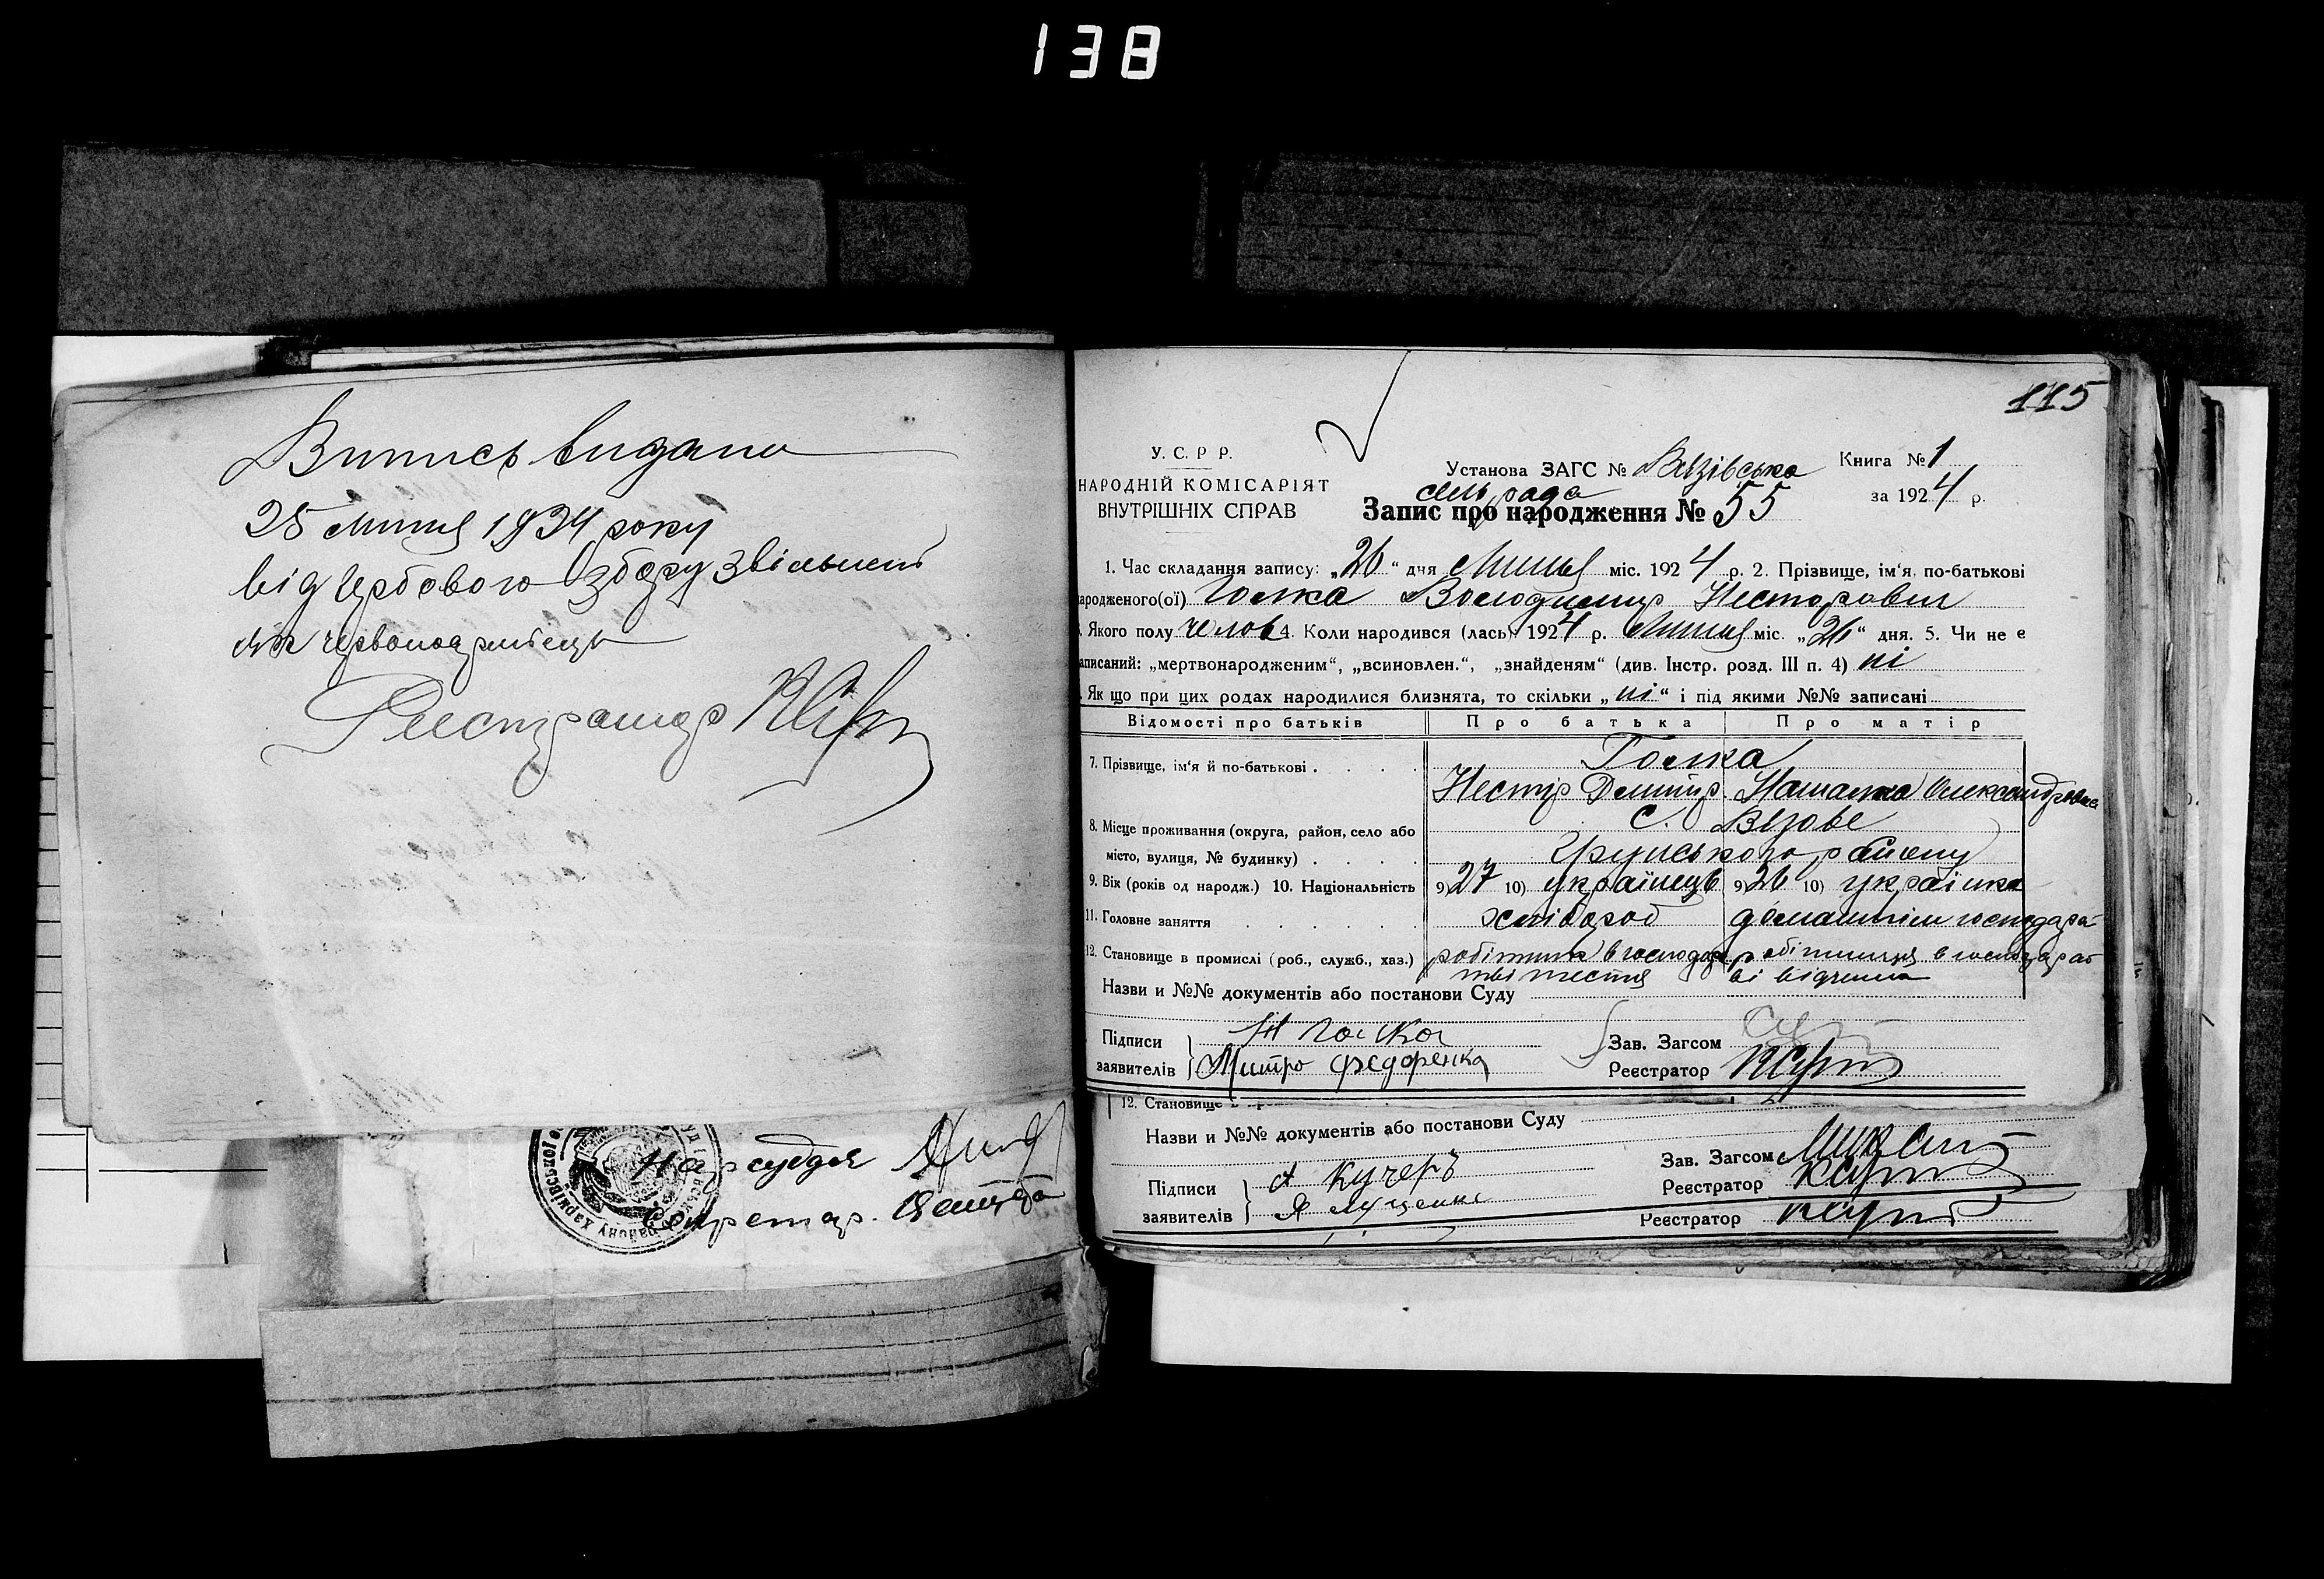 138
Випись видано
25 липня 1924 року
від гербового збору звільнен
як червоноармієць
Реєстратор
Нарсуддя
Секретар.
115
У. С. Р Р.
НАРОДНІЙ КОМІСАРІЯТ
ВНУТРІШНІХ СПРАВ
Установа ЗАГС №
Книга № 1
сель рада
за 1924 р.
Запис про народження № 55
1. Час складання запису: „26“ дня Липня міс. 1924 р. 2. Прізвище, ім‘я, по-батькові
ародженого(ої) Голка Володимир Несторович
. Якого полу челов 4. Коли народився (лась) 1924 р. Липня міс. „26“ дня. 5. Чи не є
аписаний: „мертвонародженим“, „всиновлен.“, „знайденям“ (див. Інстр. розд. III п. 4) ні
. Як що при цих родах народилися близнята, то скільки „ні“ і під якими №№ записані
Відомості про батьків Про батька Про матір
Голка
7. Прізвище, ім‘я й по-батькові . . . .
Нестір Дмитр. Наталка Олександровна
8. Місце проживання (округа, район, село або
с.
місто, вулиця, № будинку) . . . .
Грунського району
9. Вік (років од народж.) 10. Національність 9) 27 10) українець 9) 26 10) українка
11. Головне заняття . . . . . . хлібороб домашнім господара-
12. Становище в промислі (роб., служб., хаз.) робітник в господар робітниця в господарст
тві тестя ві вітчима
Назви и №№ документів або постанови Суду
Підписи Н Голка Зав. Загсом
заявителів Митро Федоренка Реєстратор
12. Становище
Назви и №№ документів або постанови Суду
Підписи А Кучеръ Зав. Загсом
заявителів Я Луценко Реєстратор
Реєстратор